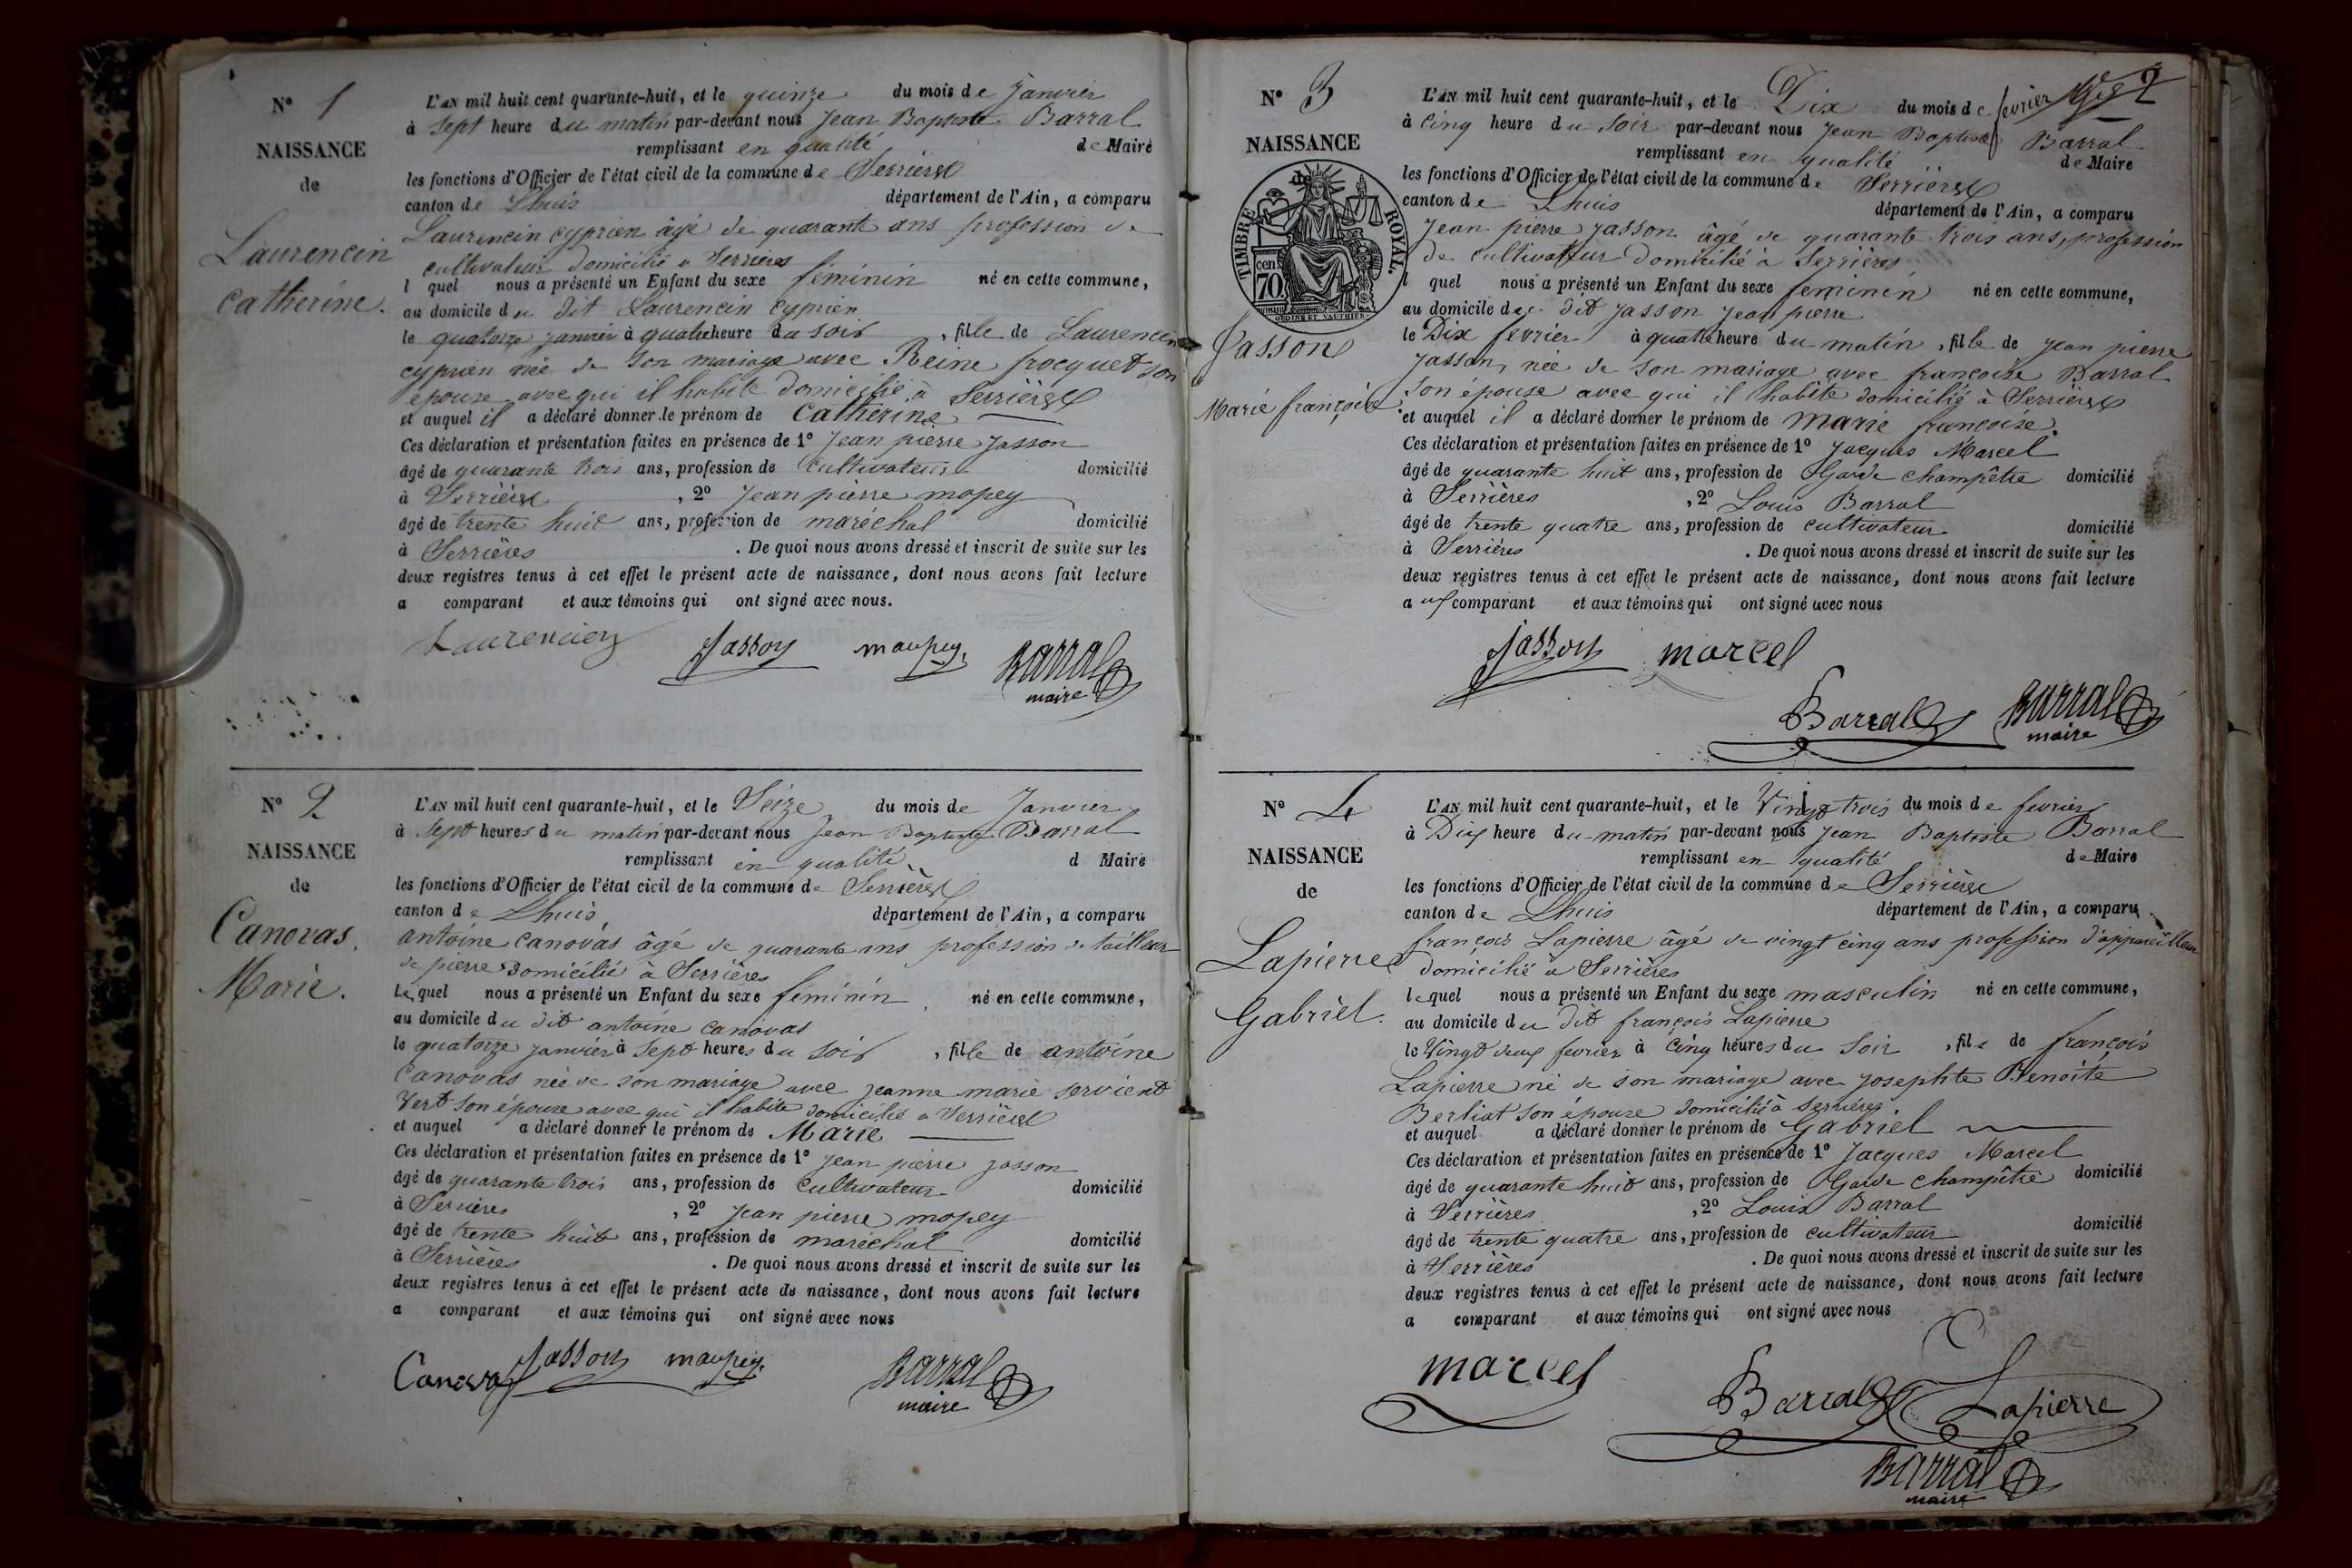 N° 1
NAISSANCE
de
Laurencin
Catherine.
L'AN mil huit cent quarante-huit, et le quinze du mois de Janvier
à sept heure du matin par-devant nous Jean Baptiste Barral
remplissant en qualité de Maire
les fonctions d'Officier de l'état civil de la commune de Serrières
canton de Lhuis département de l'Ain, a comparu
Laurencin cyprien âgé de quarante ans profession de
cultivateur domicilié a Serrières
l quel nous a présenté un Enfant du sexe feminin né en cette commune,
au domicile du dit Laurencin Cyprien
le quatorze janvier à quatre heure du soir , fille de Laurencin
cyprien née de son mariage avec Reine frocquet son
épouse avec qui il habite domicilié à Serrières
et auquel il a déclaré donner le prénom de Catherine
Ces déclaration et présentation faites en présence de 1° Jean pierre Jasson
âgé de quarante trois ans, profession de Cultivateur domicilié
à Serrières , 2° Jean pierre mopey
âgé de trente huit ans, profession de maréchal domicilié
à Serrières . De quoi nous avons dressé et inscrit de suite sur les
deux registres tenus à cet effet le présent acte de naissance, dont nous avons fait lecture
a comparant et aux témoins qui ont signé avec nous.
Laurencien Jasson maupey Barral
maire
N° 2
NAISSANCE
de
Canovas.
Marie.
L'AN mil huit cent quarante-huit, et le Seize du mois de Janvier
à Sept heures du matin par-devant nous Jean Baptiste Barral
remplissant en qualité d Maire
les fonctions d'Officier de l'état civil de la commune de Serrières
canton de Lhuis département de l'Ain, a comparu
antoine canovas âgé de quarante ans profession de tailleur
de pierre domicilié à Serrières
le quel nous a présenté un Enfant du sexe féminin né en cette commune,
au domicile du dit antoine canovas
le quatorze janvier à Sept heures du soir , fille de antoine
Canovas née de son mariage avec jeanne marie servient
Vert son épouse avec qui il habite domicilié a Serrières
et auquel a déclaré donner le prénom de Marie
Ces déclaration et présentation faites en présence de 1° Jean pierre jasson
âgé de quarante trois ans, profession de Cultivateur domicilié
à Serrières , 2° Jean pierre mopey
âgé de trente huit ans, profession de maréchal domicilié
à Serrières . De quoi nous avons dressé et inscrit de suite sur les
deux registres tenus à cet effet le présent acte de naissance, dont nous avons fait lecture
a comparant et aux témoins qui ont signé avec nous
Canova Jasson maupey Barral
maire
N° 3
NAISSANCE
de
TIMBRE ROYAL.
cen 70
Jasson
Marie françoise
L'AN mil huit cent quarante-huit, et le Dix du mois de fevrier
à Cinq heure du Soir par-devant nous Jean Baptiste Barral
remplissant en qualité de Maire
les fonctions d'Officier de l'état civil de la commune de Serrières
canton de Lhuis département de l'Ain, a comparu
Jean pierre Jasson âgé de quarante trois ans, profession
de cultivateur domicilié à Serrières
l quel nous a présenté un Enfant du sexe feminin né en cette commune,
au domicile du dit Jasson Jean pierre
le Dix fevrier à quatre heure du matin , fille de Jean pierre
Jasson, née de son mariage avec francoise Barral
son épouse avec qui il habite domicilié à Serrières
et auquel il a déclaré donner le prénom de marie francoise.
Ces déclaration et présentation faites en présence de 1° Jacques Marcel
âgé de quarante huit ans, profession de Garde champêtre domicilié
à Serrières , 2° Louis Barral
âgé de trente quatre ans, profession de cultivateur domicilié
à Serrières . De quoi nous avons dressé et inscrit de suite sur les
deux registres tenus à cet effet le présent acte de naissance, dont nous avons fait lecture
a u comparant et aux témoins qui ont signé avec nous
Jasson marcel
Barral Barral
maire
N° 4
NAISSANCE
de
Lapierre
Gabriel.
L'AN mil huit cent quarante-huit, et le Vingt trois du mois de fevrier
à Dix heure du matin par-devant nous Jean Baptiste Barral
remplissant en qualité de Maire
les fonctions d'Officier de l'état civil de la commune de Serrières
canton de Lhuis département de l'Ain, a comparu
françois Lapierre âgé de vingt cinq ans profession d'appareilleur
domicilié à Serrières
lequel nous a présenté un Enfant du sexe masculin né en cette commune,
au domicile du dit françois Lapierre
le Vingt deux fevrier à cinq heures du Soir , fils de françois
Lapierre né de son mariage avec Josephte Benoite
Berliat son épouse domicilié à serrières
et auquel a déclaré donner le prénom de Gabriel
Ces déclaration et présentation faites en présence de 1° Jacques Marcel
âgé de quarante huit ans, profession de Garde champêtre domicilié
à Serrières , 2° Louis Barral
âgé de trente quatre ans, profession de cultivateur domicilié
à Serrières . De quoi nous avons dressé et inscrit de suite sur les
deux registres tenus à cet effet le présent acte de naissance, dont nous avons fait lecture
a comparant et aux témoins qui ont signé avec nous
marcel Barral Lapierre
Barral
maire